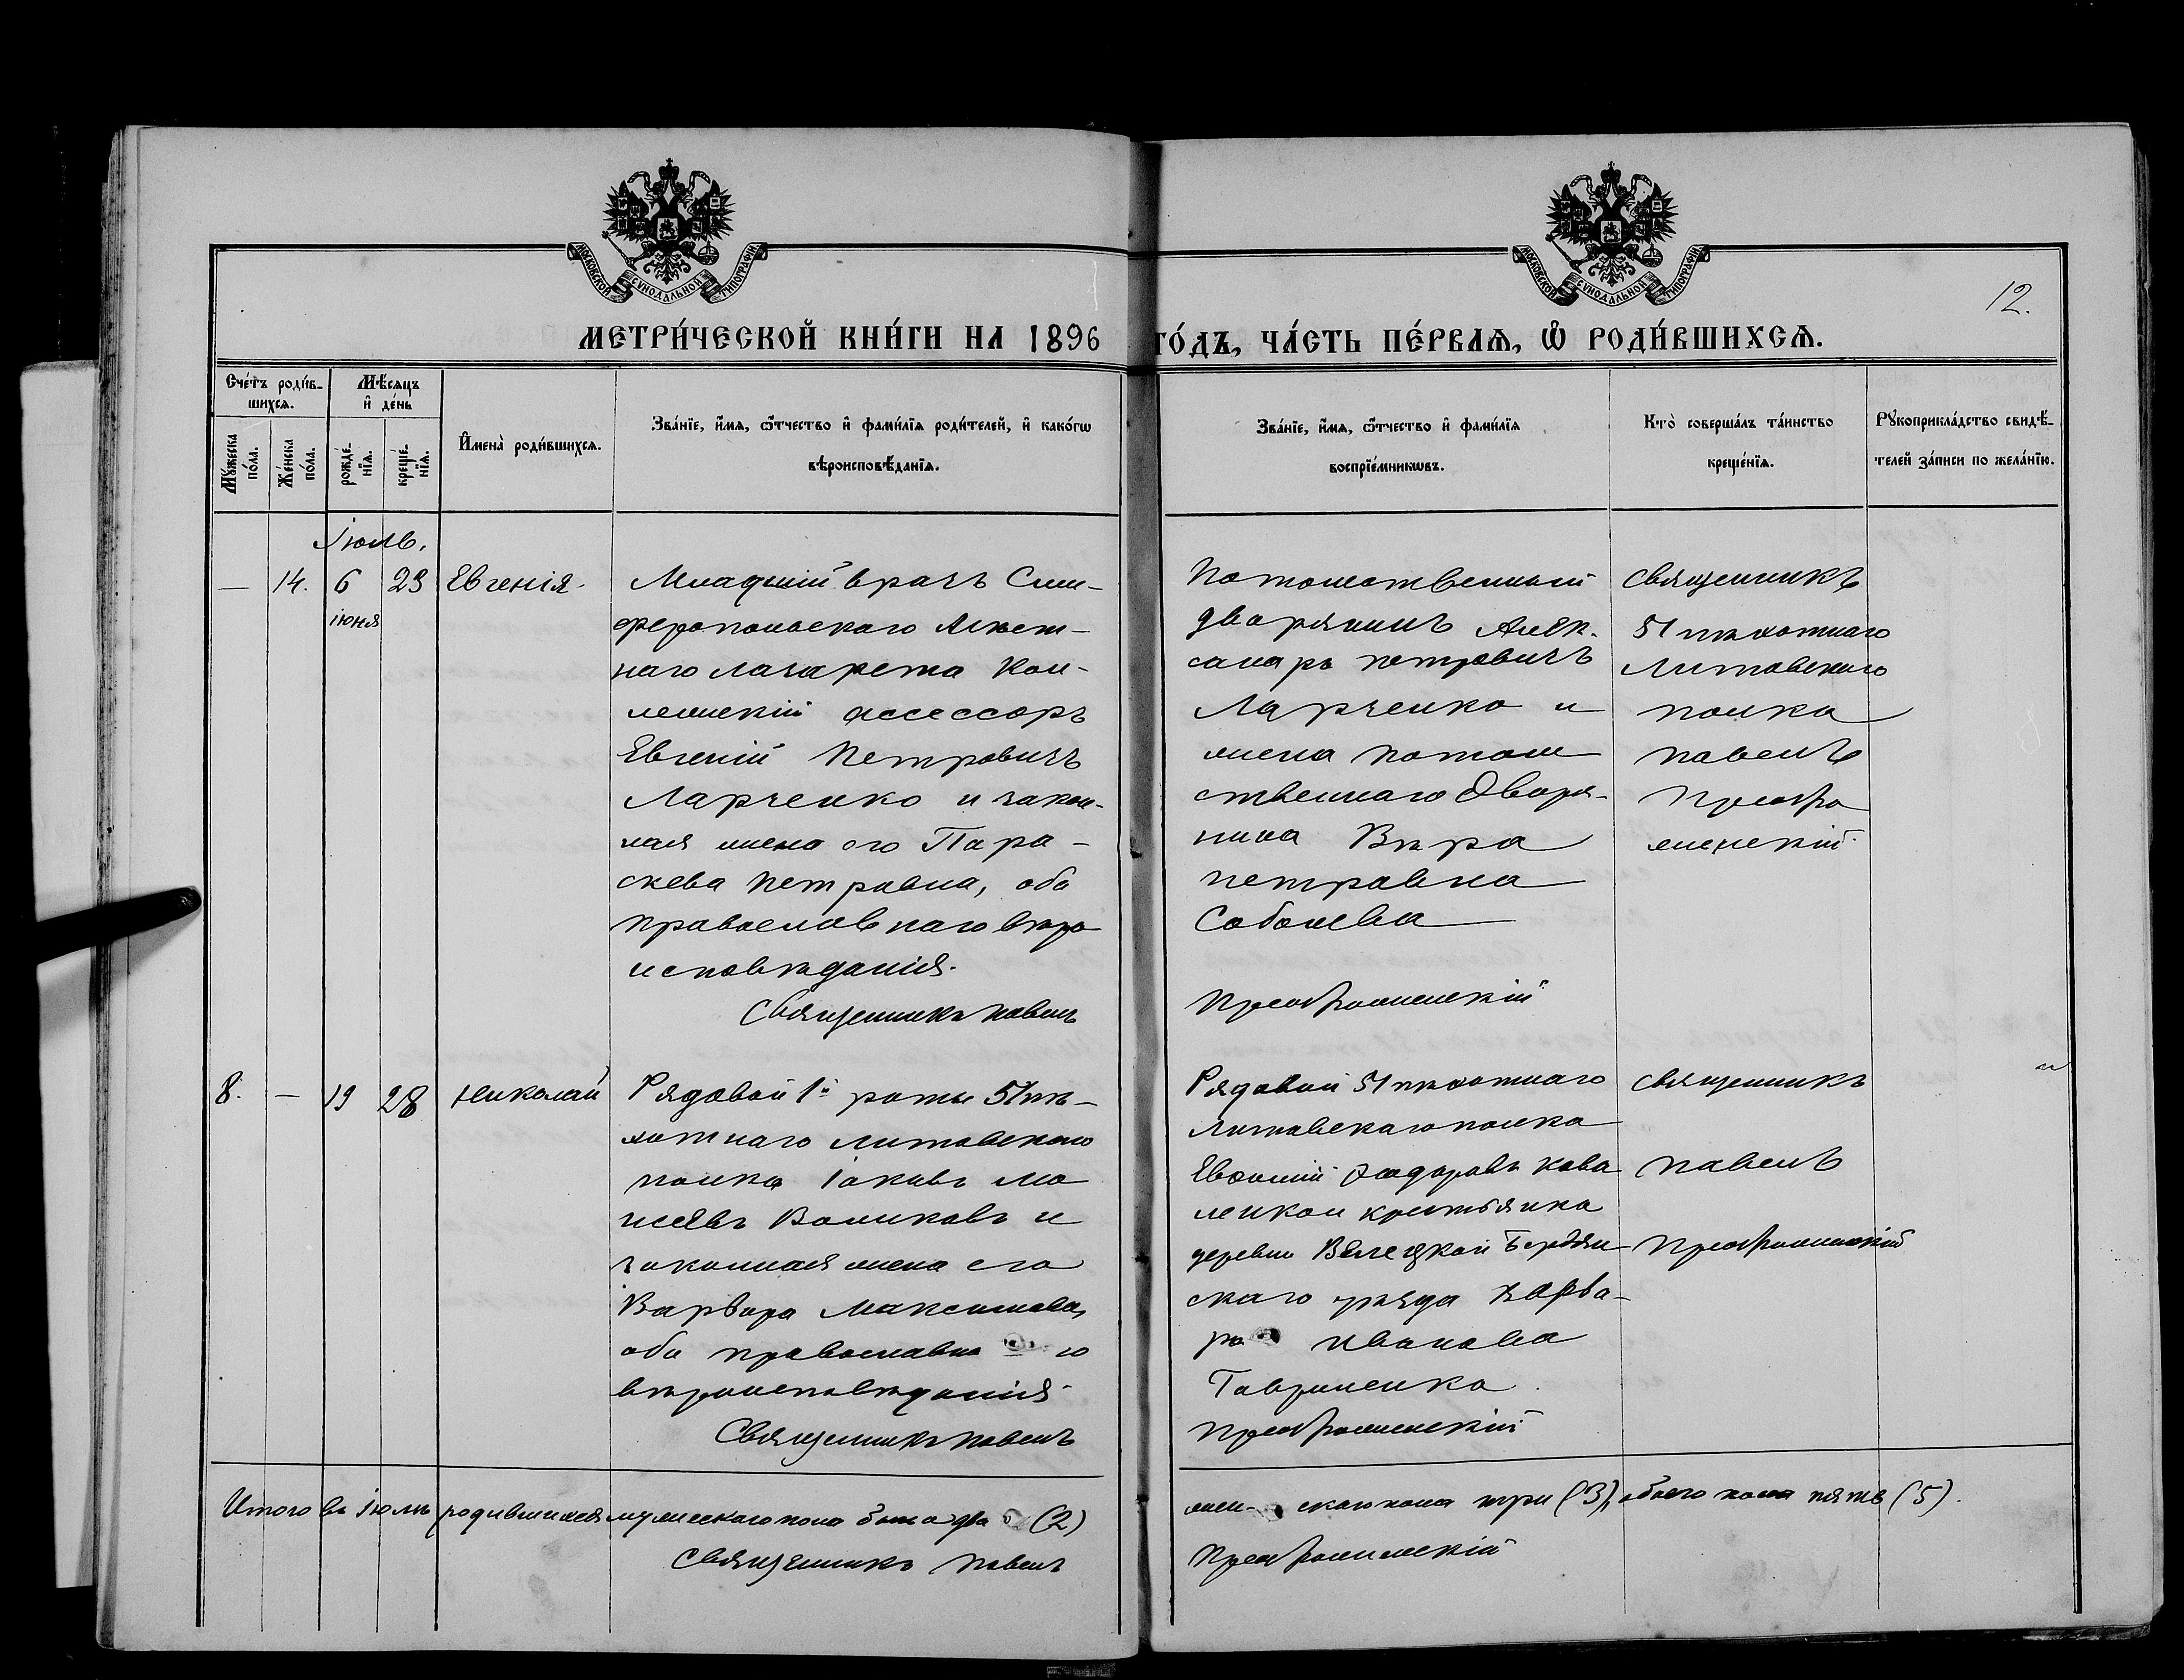 МОСКОВСКОЙ СУНОДАЛЬНОЙ ТИПОГРАФІИ
МОСКОВСКОЙ СУНОДАЛЬНОЙ ТИПОГРАФІИ
12.
МЕТРИ́ЧЕСКОЙ КНИ́ГИ НА 1896 ГО́ДЪ, ЧА́СТЬ ПЕ́РВАѦ, Ѽ РОДИ́ВШИХСѦ.
Сче́тъ роди́в-
шихсѧ.
Мѣ́сѧцъ
и҆ де́нь
Мꙋ́жеска
по́ла.
Же́нска
по́ла.
рожде́-
нїѧ.
креще́-
нїѧ.
И҆мена̀ роди́вшихсѧ.
Зва́нїе, и҆́мѧ, ѻ҆́тчество и҆ фами́лїѧ роди́телей, и҆ како́гѡ
вѣроисповѣ́данїѧ.
Зва́нїе, и҆́мѧ, ѻ҆́тчество и҆ фами́лїѧ
воспрїе́мникѡвъ.
Кто̀ соверша́лъ та́инство
креще́нїѧ.
Рꙋкоприкла́дство свидѣ́-
телей за́писи по жела́нїю.
Іюль.
— 14. 6 23 Евгенія.
іюня
Младшій врачъ Сим-
феропольскаго Мѣст-
наго лазарета Кол-
лежскій ассессоръ
Евгеній Петровичъ
Ларченко и закон-
ная жена его Пара-
скева Петровна, оба
православнаго вѣро
исповѣданія.
Священникъ Павелъ
Потомственный
дворянинъ Алек-
сандръ Петровичъ
Ларченко и
жена потом
ственнаго дворя-
нина Вѣра
Петровна
Соболева
Преображенскій
Священникъ
51 пѣхотнаго
Литовскаго
полка
Павелъ
Преобра
женскій.
8. — 19 28 Николай
Рядовой 1й роты 51 пѣ-
хотнаго Литовскаго
полка Іаковъ Мо
исеевъ Воликовъ и
законная жена его
Варвара Максимова,
оба православнаго
вѣроисповѣданія.
Священникъ Павелъ
Рядовой 51 пѣхотнаго
Литовскаго полка
Евѳимій Ѳедоровъ Кова
ленко и крестьянка
деревни Бердян
скаго уѣзда Варва-
ра Иванова
Гавриленко.
Преображенскій
Священникъ
Павелъ
Преображенскій
Итого въ Іюлѣ родившихся мужескаго пола было два (2) жен- скаго пола три (3), обоего пола пять (5).
Священникъ Павелъ Преображенскій